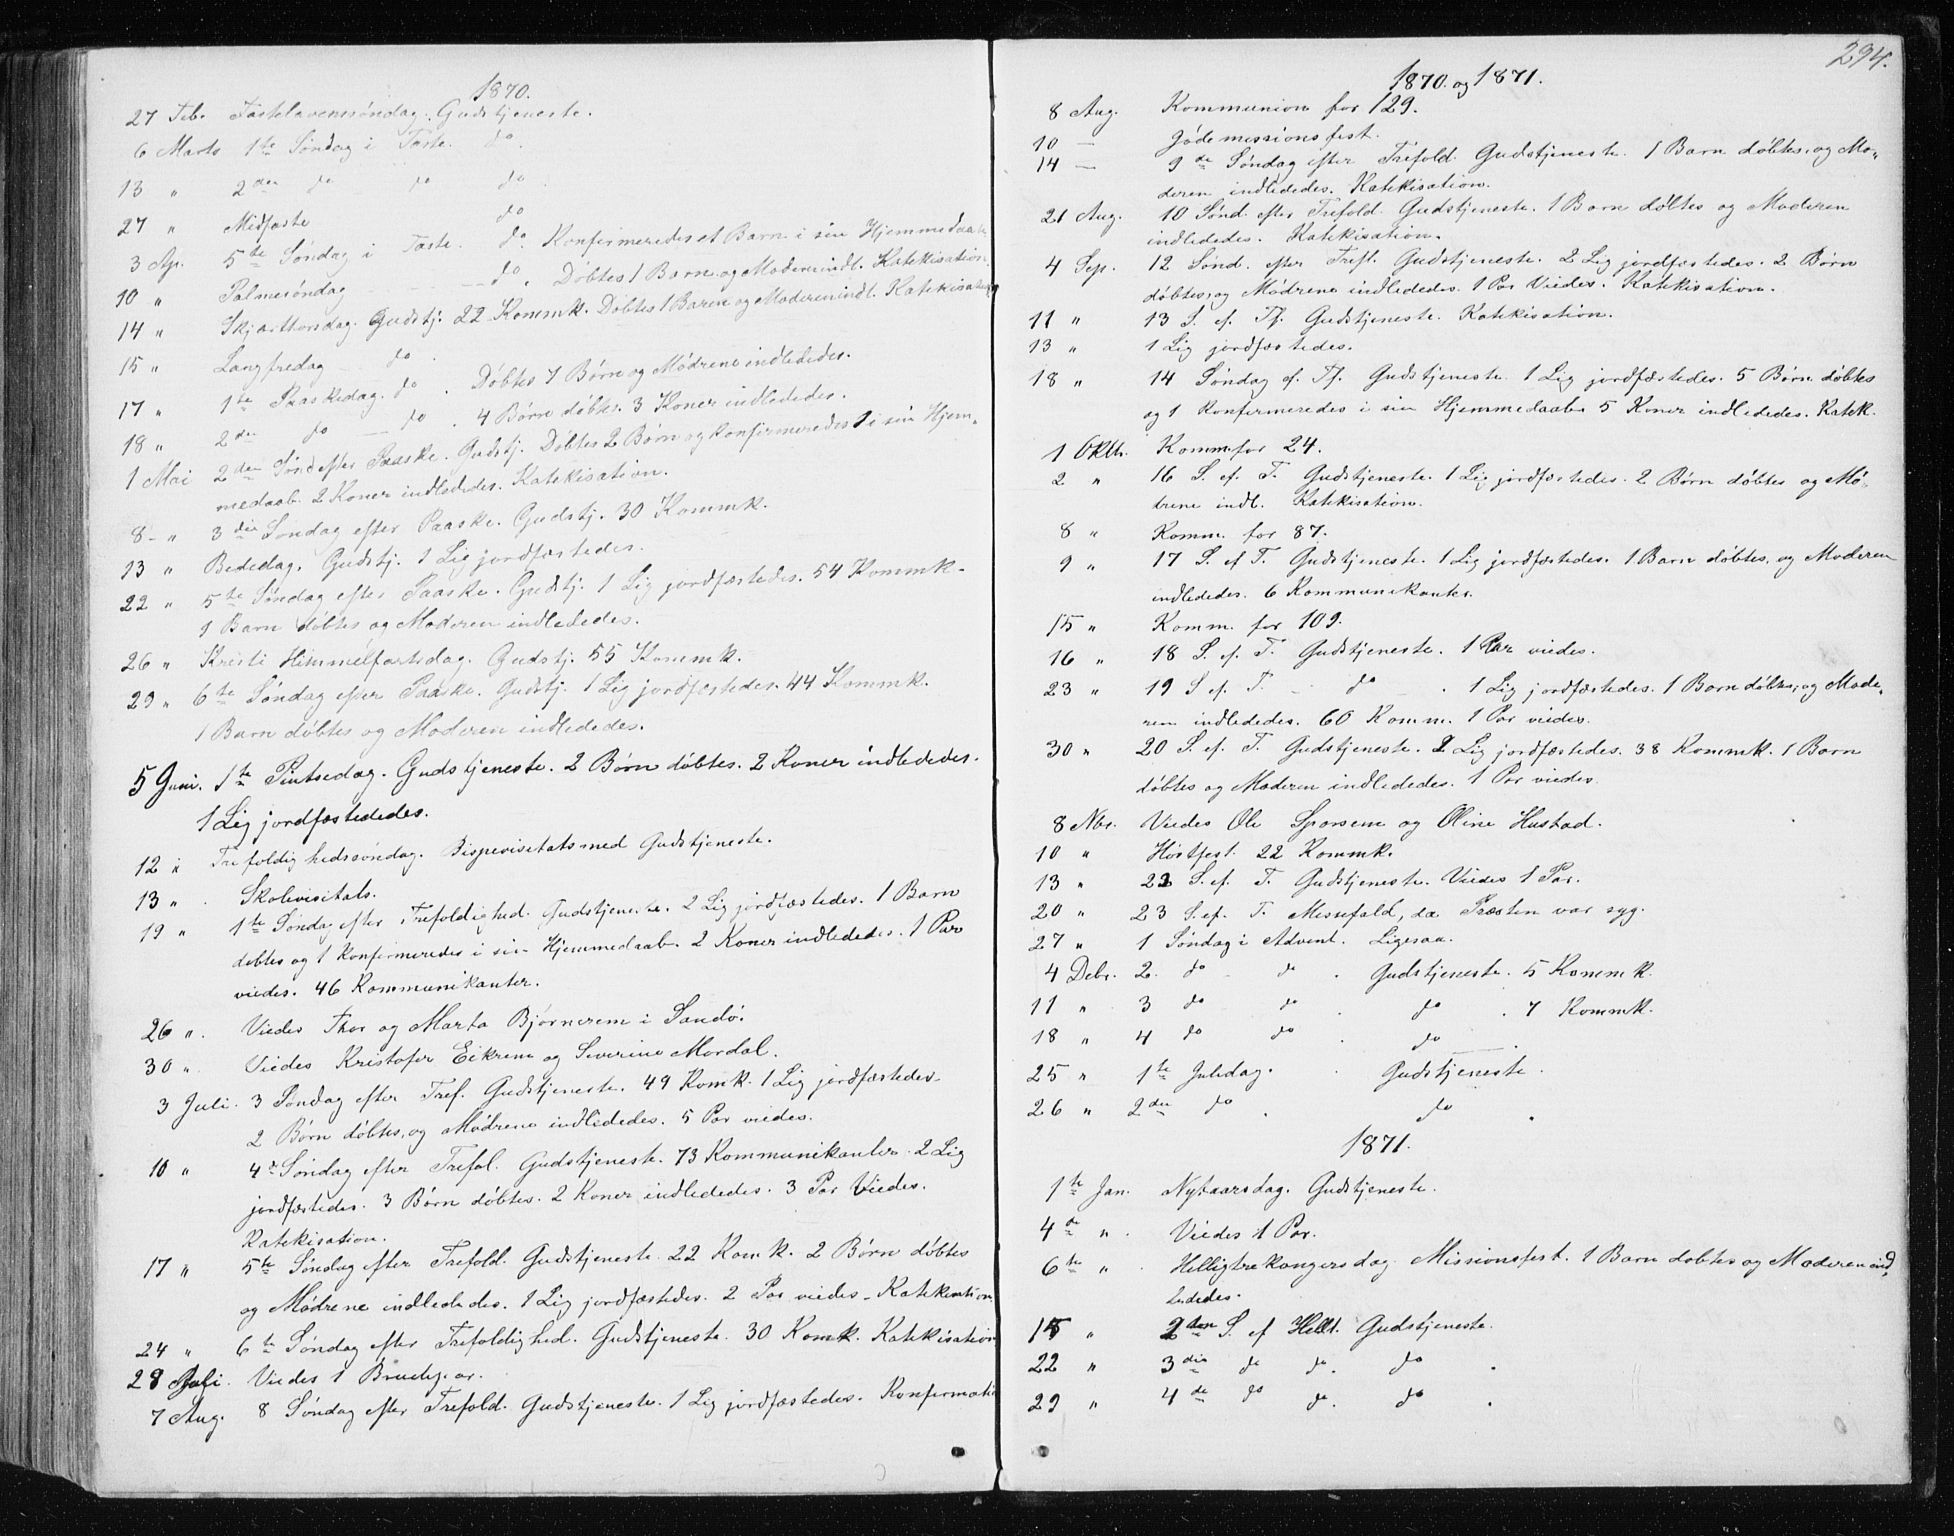 1870.
27 Feb. Fastelavenssøndag. Gudstjeneste.
6 Marts 1te Søndag i Faste. do.
13 " 2den do do do.
27 " Midfaste do
3 Ap. 5te Søndag i Faste. do. Konfirmeredes et Barn i sin Hjemmedaab.
10 " Palmesøndag do. Døbtes 1 Barn og Moderen indl. Katekisation.
14 " Skjærtorsdag. Gudstj. 22 Kommk. Døbtes 1 Barn og Moderen indl. Katekisation
15 " Langfredag do.
17 " 1te Paaskedag. do. Døbtes 7 Børn og Mødrene indlededes.
18 " 2den do do. 4 Børn døbtes. 3 Koner indlededes.
1 Mai 2den Sønd efter Paaske. Gudstj. Døbtes 2 Børn og konfirmeredes 1 i sin Hjem-
medaab. 2 Koner indlededes. Katekisation.
8 - " 3die Søndag efter Paaske. Gudstj. 30 Kommk.
13 " Bededag. Gudstj. 1 Lig jordfæstedes.
22 " 5te Søndag efter Paaske. Gudstj. 1 Lig jordfæstedes. 54 Kommk.
1 Barn døbtes og Moderen indlededes.
26 " Kristi Himmelfartsdag. Gudstj. 55 Kommk.
29 " 6te Søndag efter Paaske. Gudstj. 1 Lig jordfæstedes. 44 Kommk.
1 Barn døbtes og Moderen indlededes.
5 Juni. 1te Pintsedag. Gudstjeneste. 2 Børn døbtes. 2 Koner indlededes.
1 Lig jordfæstededes.
12 " Trefoldighedssøndag. Bispevisitats med Gudstjeneste.
13 " Skolevisitats.
19 " 1te Søndag efter Trefoldighed. Gudstjeneste. 2 Lig jordfæstedes. 1 Barn
døbtes og 1 konfirmeredes i sin Hjemmedaab. 2 Koner indlededes. 1 Par
viedes. 46 Kommunikanter.
26 ". Viedes Thor og Marta Bjørnerem i Sandø.
30 ". Viedes Kristofer Eikrem og Severine Mordal.
3 Juli. 3 Søndag efter Tref. Gudstjeneste. 49 Komk. 1 Lig jordfæstedes.
2 Børn døbtes, og Mødrene indlededes. 5 Par viedes.
10 " 4de Søndag efter Trefol. Gudstjeneste. 73 Kommunikanter. 2 Lig
jordfæstedes. 3 Børn døbtes. 2 Koner indlededes. 3 Par Viedes.
Katekisation.
17 " 5te Søndag efter Trefold. Gudstjeneste. 22 Komk. 2 Børn døbtes
og Mødrene indlededes. 1 Lig jordfæstedes. 2 Par viedes. Katekisation.
24 " 6te Søndag efter Trefoldighed. Gudstjeneste. 30 Komk. Katekisation
28 Juli. Viedes 1 Brudepar.
7 Aug. 8 Søndag efter Trefold. Gudstjeneste. 1 Lig jordfæstedes. Konfirmation
294.
1870. og 1871.
8 Aug. Kommunion for 129.
10 — Jødemissionsfest.
14 — 9de Søndag efter Trefold. Gudstjeneste. 1 Barn døbtes, og Mo-
deren indlededes. Katekisation.
21 Aug. 10 Sønd. efter Trefold. Gudstjeneste. 1 Barn døbtes og Moderen
indlededes. Katekisation.
4 Sep. 12 Sønd. efter Trefl. Gudstjeneste. 2 Lig jordfæstedes. 2 Børn
døbtes, og Mødrene indlededes. 1 Par Viedes. Katekisation.
11 " 13 S. ef. Tf. Gudstjeneste. Katekisation.
13 " 1 Lig jordfæstedes.
18 " 14 Søndag ef. Tf. Gudstjeneste. 1 Lig jordfæstedes. 5 Børn døbtes
og 1 konfirmeredes i sin Hjemmedaab. 5 Koner indlededes. Katek.
1 Oktb. Komm. for 24.
2 " 16 S. ef. T. Gudstjeneste. 1 Lig jordfæstedes. 2 Børn døbtes og Mø-
drene indl. Katekisation.
8 " Komm. for 87.
9 " 17 S. ef T. Gudstjeneste. 1 Lig jordfæstedes. 1 Barn døbtes, og Moderen
indlededes. 6 Kommunikanter.
15 " Komm. for 109.
16 " 18 S. ef. T. Gudstjeneste. 1 Par viedes.
23 " 19 S ef. T. do. 1 Lig jordfæstedes. 1 Barn døbtes, og Mode-
ren indlededes. 60 Komm. 1 Par viedes.
30 " 20 S. ef. T. Gudstjeneste. 2 Lig jordfæstedes. 38 Kommk. 1 Barn
døbtes og Moderen indlededes. 1 Par viedes.
8 Nbr. Viedes Ole Sporsem og Oline Hustad.
10 " Høstfest. 22 Kommk.
13 " 22 S. ef. T. Gudstjeneste. Viedes 1 Par.
20 " 23 S. ef. T. Messefald, da Præsten var syg.
27 " 1 Søndag i Advent. Ligesaa.
4 Debr. 2. do do. Gudstjeneste. 5 Kommk.
11 " 3 do do do. 7 Kommk.
18 " 4 do do. do.
25 " 1te Juledag. Gudstjeneste.
26 " 2den do. do.
1871.
1te Jan. Nytaarsdag. Gudstjeneste.
4de ". Viedes 1 Par.
6te ". Helligtrekongersdag. Missionsfest. 1 Barn døbtes og Moderen ind-
lededes.
15 " 2den S. ef Hellt. Gudstjeneste.
22 " 3die do do. do.
29 " 4de do do. do.